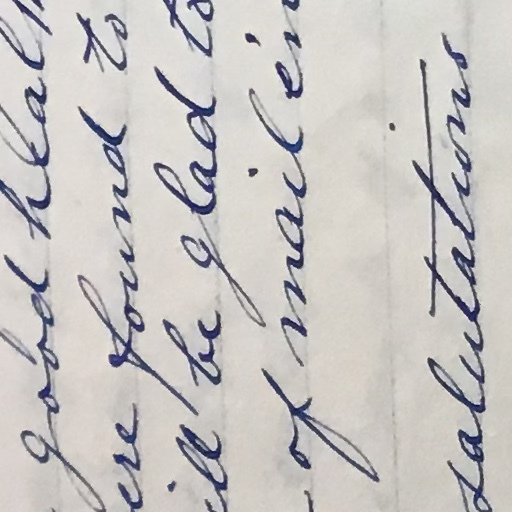 good healt
ere found to
ill be glad to
of mail in
salutations